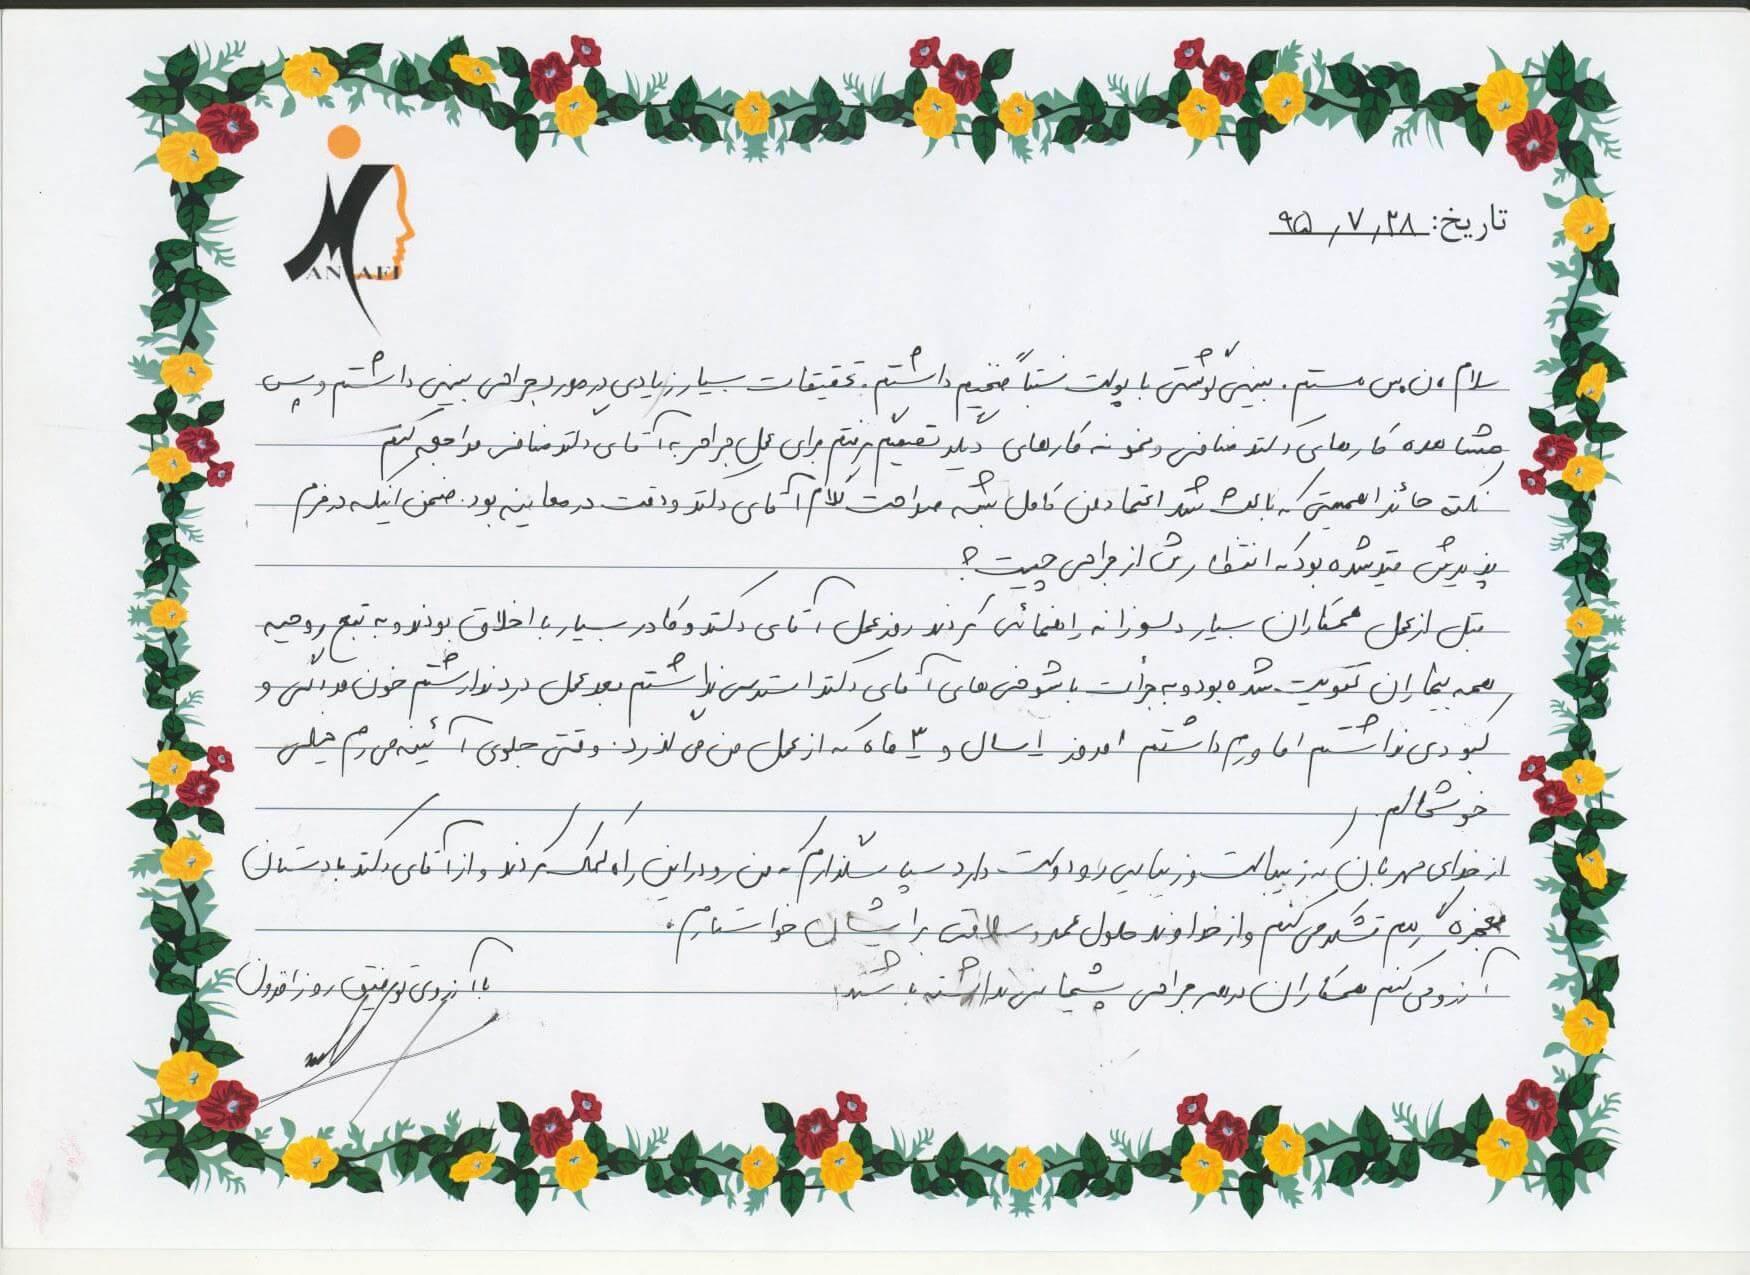 تاریخ: ۹۵٫۷٫۲۸
MANAFI
سلام ن.س هستم. بینی گوشتی با پوست نسبتاً ضخیم داشتم. تحقیقات بسیار زیادی در مورد جراحی بینی داشتم و پس
مشاهده کارهای دکتر منافی و نمونه کارهای دیگر تصمیم گرفتم برای عمل جراحی به آقای دکتر منافی مراجعه کنم
نکته حائز اهمیتی که باعث شد اعتماد من کامل بشه صراحت کلام آقای دکتر و دقت در معاینه بود. ضمن اینکه در فرم
پذیرش قید شده بود که انتظارش از جراحی چیست؟
قبل از عمل همکاران بسیار دلسوزانه راهنمائی کردند روز عمل آقای دکتر و کادر بسیار با اخلاق بودند و به تبع روحیه
همه بیماران تقویت شده بود و به جرأت با شوخی های آقای دکتر استرس نداشتم بعد عمل درد نداشتم خون مردگی و
کبودی نداشتم اما ورم داشتم امروز ۱ سال و ۳ ماه که از عمل من می گذرد. وقتی جلوی آئینه می رم خیلی
خوشحالم.
از خدای مهربان که زیباست و زیبایی رو دوست دارد سپاسگذارم که من رو در این راه کمک کردند و از آقای دکتر با دستان
معجزه گرم تشکر می کنم و از خداوند طول عمر و سلامتی برایشان خواستارم.
آرزو می کنم همکاران در هر جراحی پشیمانی نداشته باشند
با آرزوی توفیق روز افزون